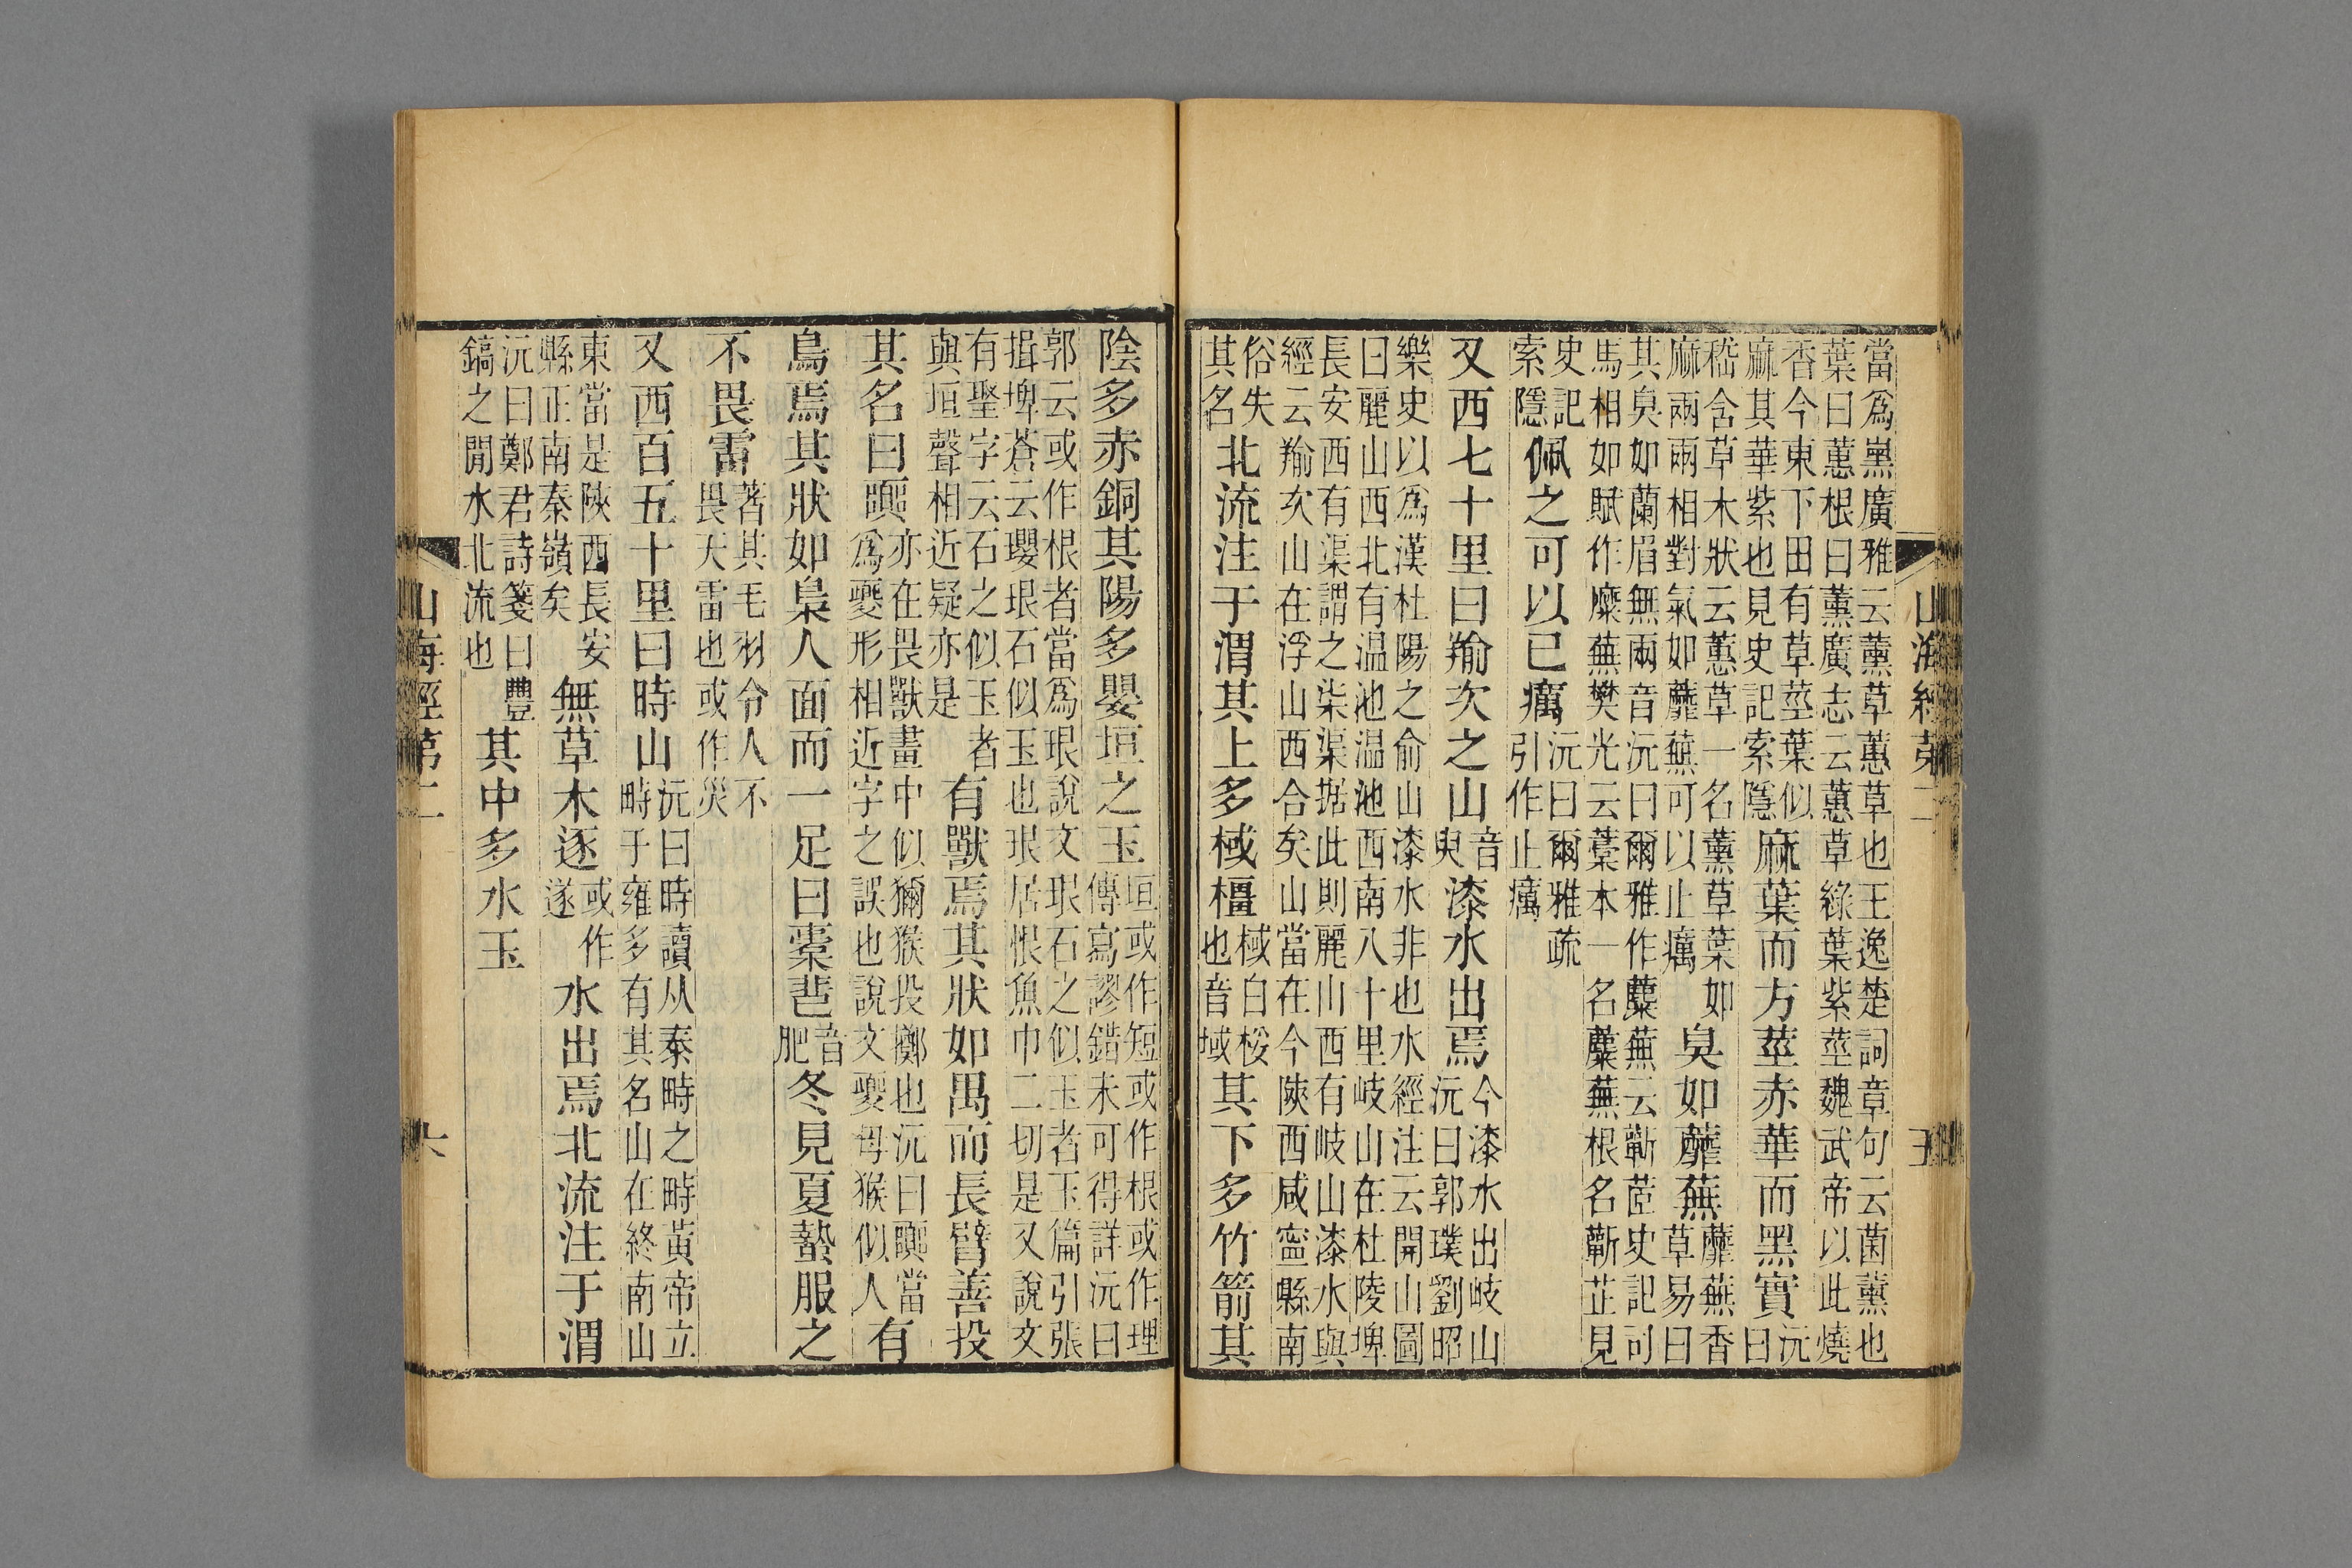 當爲廣雅云薰草蕙草也王逸楚詞章句云菌薰也
葉曰蕙根曰薰廣志云蕙草綠葉紫莖魏武帝以此燒
香今東下田有草莖葉似麻其華紫也見史記索隱麻葉而方莖赤華而黑實沅曰
嵇含草木狀云蕙草一名薰草葉如麻兩兩相對氣如蘼蕪可以止癘臭如蘼蕪蘼蕪香草易曰
其臭如蘭眉無兩音沅曰爾雅作蘪蕪云蘄茝史記司
馬相如賦作穈蕪樊光云藁本一名蘪蕪根名蘄芷見
史記索隱佩之可以已癘沅曰爾雅疏引作止癘
又西七十里曰羭次之山音臾漆水出焉今漆水出岐山沅曰郭璞劉昭
樂史以爲漢杜陽之俞山漆水非也水經注云開山圖
曰麗山西北有温池温池西南八十里岐山在杜陵埤
長安西有渠謂之柒渠据此則麗山西有岐山漆水與
經云羭次山在浮山西合矣山當在今陝西咸寍縣南
俗失其名北流注于渭其上多棫橿棫白桵也音域其下多竹箭其
山海經第二 五
陰多赤銅其陽多嬰垣之玉垣或作短或作根或作理傳寫謬錯未可得詳沅曰
郭云或作根者當爲珢說文珢石之似玉者玉篇引張
揖埤蒼云瓔珢石似玉也珢居恨魚巾二切是又說文
有字云石之似玉者與垣聲相近疑亦是有獸焉其狀如禺而長臂善投
其名曰嚻亦在畏獸畫中似獼猴投擲也沅曰嚻當爲夒形相近字之誤也說文夒母猴似人有
鳥焉其狀如梟人面而一足曰橐𩇯音肥冬見夏蟄服之
不畏雷著其毛羽令人不畏天雷也或作災
又西百五十里曰時山沅曰時讀从秦畤之畤黃帝立畤于雍多有其名山在終南山
東當是陝西長安縣正南秦嶺矣無草木逐或作遂水出焉北流注于渭
沅曰鄭君詩箋曰豐鎬之閒水北流也其中多水玉
山海經第二 六